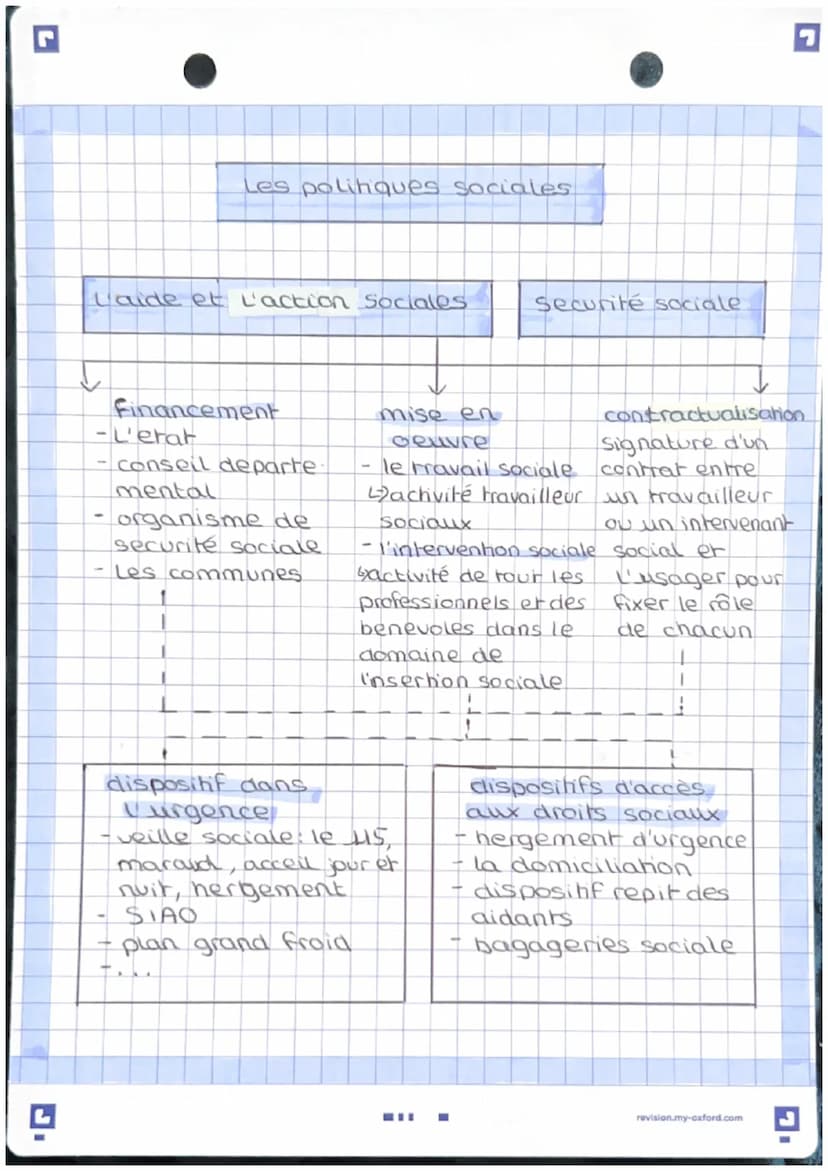 Les politiques sociales
L'aide et L'action sociales
securité sociale
financement
- L'etat
- conseil departe-
mental
- organisme de
securité sociale
- Les communes
mise en
oeuvre
- le travail sociale
↳activité travailleur
sociaux
- l'intervention sociale
↳activité de tout les
professionnels et des
benevoles dans le
domaine de
l'insertion sociale
contractualisation
signature d'un
contrat entre
un travailleur
ou un intervenant
social et
l'usager pour
fixer le rôle
de chacun
dispositif dans
l'urgence
- veille sociale: le 115,
maraud, acceil jour et
nuit, hergement
- SIAO
- plan grand froid
-...
dispositifs d'accès
aux droits sociaux
- hergement d'urgence
- la domiciliation
- dispositif repit des
aidants
- bagageries sociale
revision.my-oxford.com